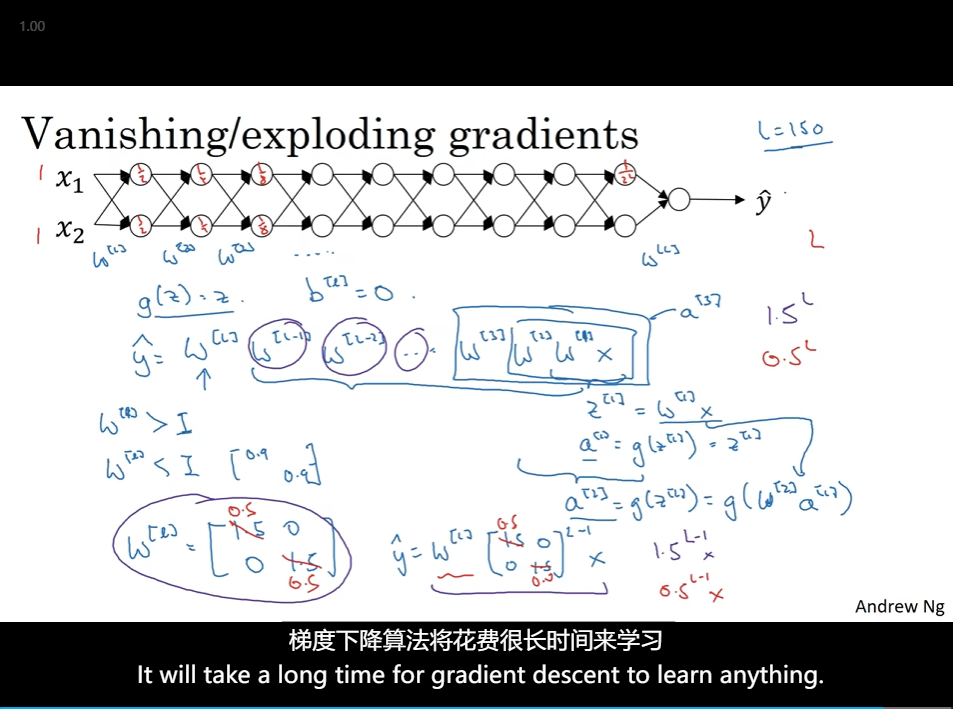 1.00
Vanishing/exploding gradients
L=150
1 x₁ 1/2 1/4 1/8 1/2^L
ŷ
1 x₂ 1/2 1/4 1/8
w^[1] w^[2] w^[3] ..... w^[L]
L
g(z) = z. b^[l] = 0.
a^[3]
1.5^L
ŷ = w^[L] w^[L-1] w^[L-2] ... w^[3] w^[2] w^[1] x
0.5^L
z^[1] = w^[1] x
w^[l] > I
a^[1] = g(z^[1]) = z^[1]
w^[l] < I [0.9 0.9]
a^[2] = g(z^[2]) = g(w^[2] a^[1])
0.5 0.5
w^[l] = [1.5 0
0 1.5]
0.5
ŷ = w^[L] [1.5 0
0 1.5]^L-1 x
0.5
1.5^L-1 x
0.5^L-1 x
Andrew Ng
梯度下降算法将花费很长时间来学习
It will take a long time for gradient descent to learn anything.